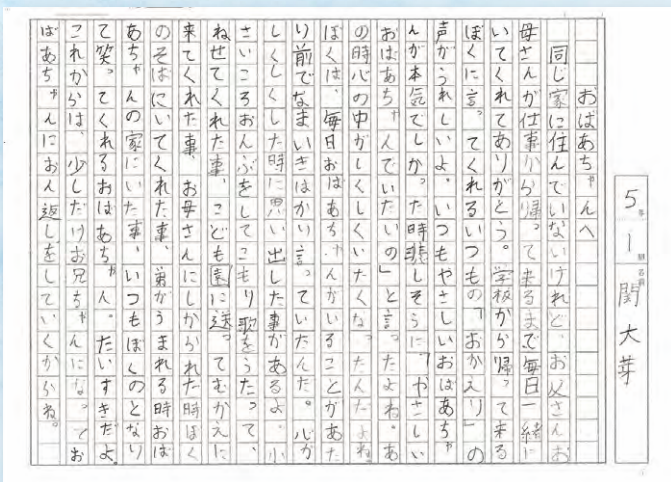 5年1組 名前 関大芽
おばあちゃんへ
同じ家に住んでいないけれど、お父さんお
母さんが仕事から帰って来るまで毎日一緒に
いてくれてありがとう。学校から帰って来る
ぼくに言ってくれるいつもの「おかえり」の
声がうれしいよ。いつもやさしいおばあちゃ
んが本気でしかった時悲しそうに「やさしい
おばあちゃんでいたいの」と言ったよね。あ
の時心の中がしくしくいたくなったんだよね。
ぼくは、毎日おばあちゃんがいることがあた
り前でなまいきばかり言っていたんだ。心が
しくしくした時に思い出した事があるよ。小
さいころおんぶをしてこもり歌をうたって、
ねせてくれた事、こども園に送ってむかえに
来てくれた事、お母さんにしかられた時ぼく
のそばにいてくれた事、弟がうまれる時おば
あちゃんの家にいた事、いつもぼくのとなり
て笑ってくれるおばあちゃん。だいすきだよ。
これからは、少しだけお兄ちゃんになってお
ばあちゃんにおん返しをしていくからね。